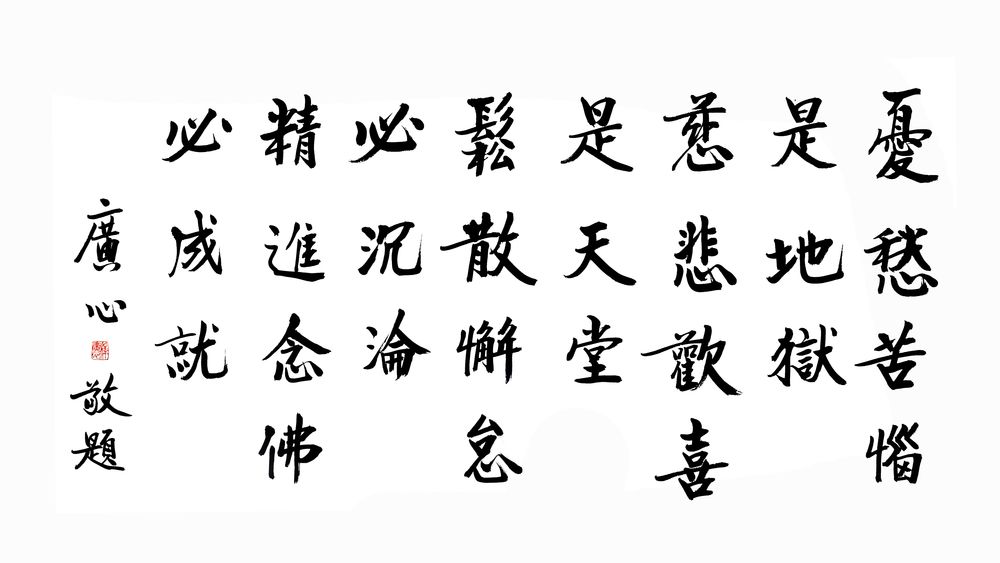 憂愁苦惱
是地獄
慈悲歡喜
是天堂
鬆散懈怠
必沉淪
精進念佛
必成就
廣心敬題